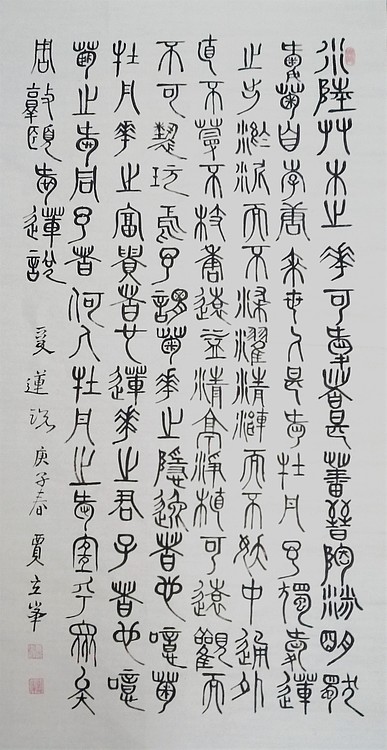 水陸艸木之華可愛者甚蕃晉陶淵明獨
愛菊自李唐來世人甚愛牡丹予獨愛蓮
之出淤泥而不染濯清漣而不妖中通外
直不蔓不枝香遠益清亭淨植可遠觀而
不可褻玩焉予謂菊華之隱逸者也噫菊
牡丹華之富貴者也蓮華之君子者也噫
菊之愛同予者何人牡丹之愛宜乎眾矣
周敦頤愛蓮說 愛蓮說 庚子春 賈立峯